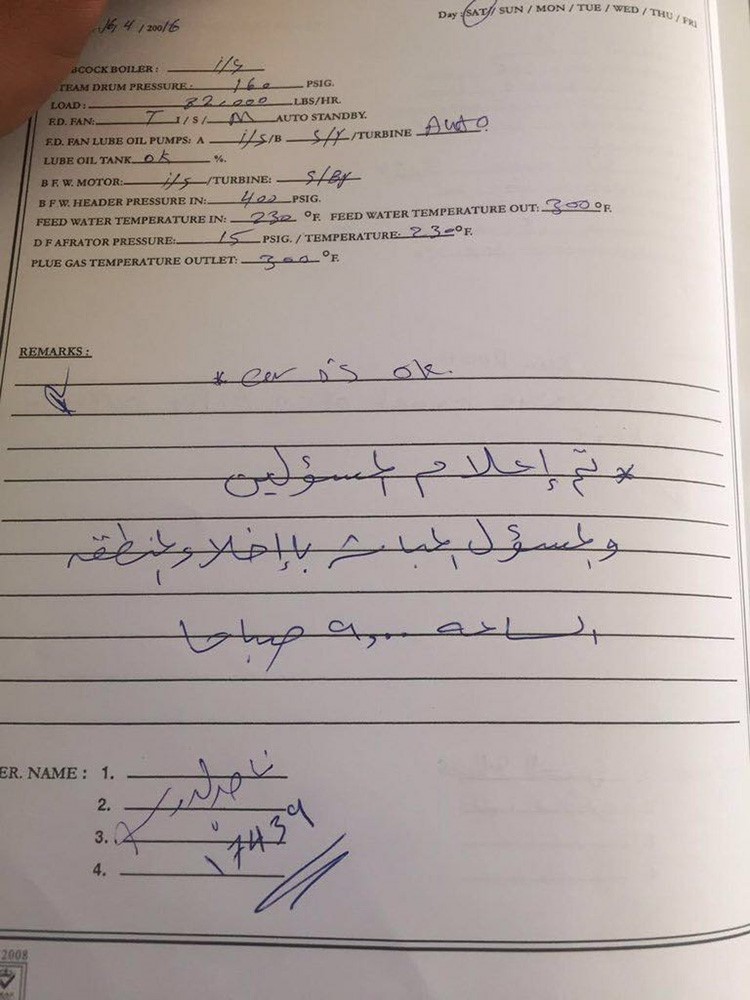 4 / 20016 Day : SAT / SUN / MON / TUE / WED / THU / FRI
BCOCK BOILER : i/s
TEAM DRUM PRESSURE : 160 PSIG.
LOAD : 82,000 LBS/HR.
F.D. FAN: T I / S / M AUTO STANDBY.
F.D. FAN LUBE OIL PUMPS: A i/s /B s/y /TURBINE Auto
LUBE OIL TANK ok %.
B F.W. MOTOR: i/s /TURBINE: s/By
B F W. HEADER PRESSURE IN: 400 PSIG.
FEED WATER TEMPERATURE IN: 230 °F. FEED WATER TEMPERATURE OUT: 300 °F.
D F AFRATOR PRESSURE: 15 PSIG. / TEMPERATURE: 230 °F.
PLUE GAS TEMPERATURE OUTLET: 300 °F.
REMARKS :
* car is ok.
* تم إعلام المسؤولين
والمسؤول المباشر بإخلاء المنطقه
الساعه ٩,٠٠ صباحا
ER. NAME : 1.
2.
3. 17439
4.
2008